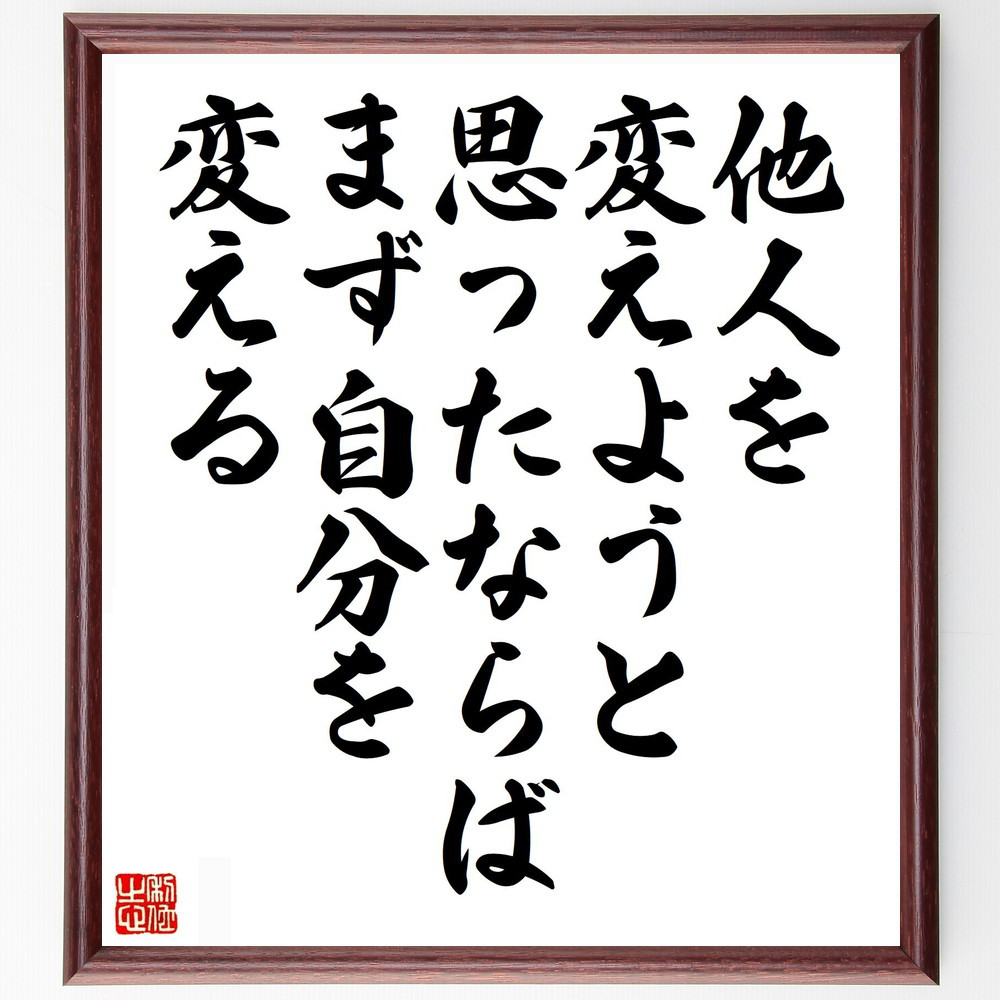 他人を
変えようと
思ったならば
まず自分を
変える